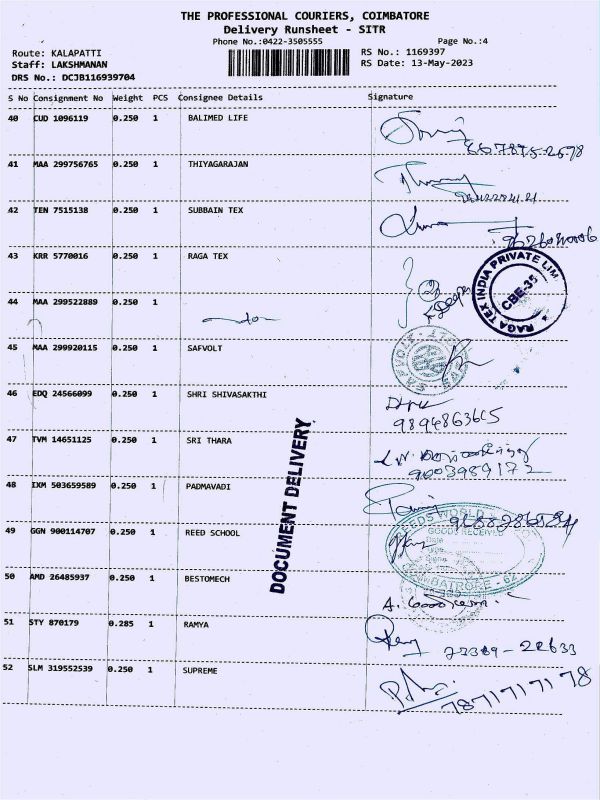 THE PROFESSIONAL COURIERS, COIMBATORE
Delivery Runsheet - SITR
Phone No.:0422-3505555 Page No.:4
Route: KALAPATTI RS No.: 1169397
Staff: LAKSHMANAN RS Date: 13-May-2023
DRS No.: DCJB116939704
S No Consignment No Weight PCS Consignee Details Signature
40 CUD 1096119 0.250 1 BALIMED LIFE
41 MAA 299756765 0.250 1 THIYAGARAJAN
42 TEN 7515138 0.250 1 SUBBAIN TEX
43 KRR 5770016 0.250 1 RAGA TEX
RAGA TEX INDIA PRIVATE LIM
CBE-35
44 MAA 299522889 0.250 1
45 MAA 299920115 0.250 1 SAFVOLT
46 EDQ 24566099 0.250 1 SHRI SHIVASAKTHI
9894863615
47 TVM 14651125 0.250 1 SRI THARA
9003989172
48 IXM 503659589 0.250 1 PADMAVADI
DOCUMENT DELIVERY
49 GGN 900114707 0.250 1 REED SCHOOL
GOODS RECEIVED
50 AMD 26485937 0.250 1 BESTOMECH
51 STY 870179 0.285 1 RAMYA
52 SLM 319552539 0.250 1 SUPREME
7871717178